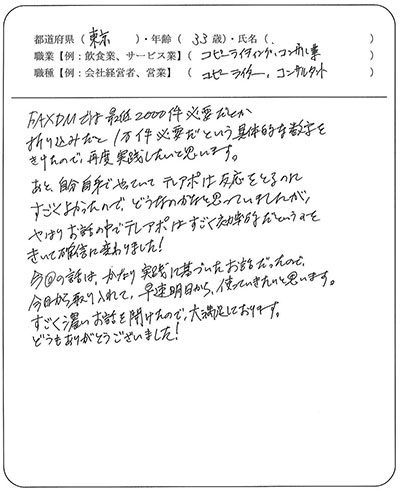 都道府県( 東京 )・年齢( 33 歳)・氏名( )
職業【例:飲食業、サービス業】( コピーライティング、コンサル業 )
職種【例:会社経営者、営業】( コピーライター、コンサルタント )
FAXDMでは最低2000件必要だとか
折り込みだと1万件必要だという具体的な数字を
きけたので、再度実践したいと思います。
あと、自分自身でやっていてテレアポは反応をとるのに
すごくよかったので、どうなのかなと思っていましたが、
やはりお話の中でテレアポはすごく効率的だということを
きいて確信に変わりました!
今回の話は、かなり実践に基づいたお話だったので、
今日から取り入れて、早速明日から、使っていきたいと思います。
すごく濃いお話を聞けたので、大満足しております。
どうもありがとうございました!